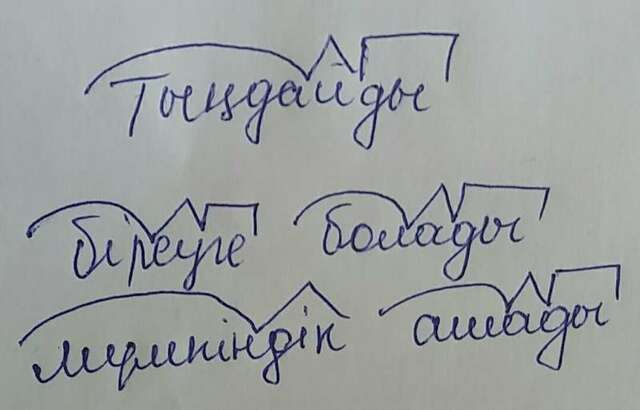 Тыңдайды
біреуге болады
мүмкіндік ашады